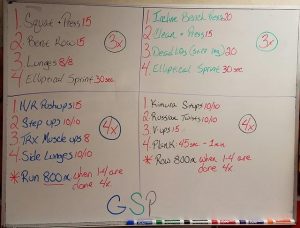 1 Squat + Press 15
2 Bent Row 15
3 Lunges 8/8
4 Elliptical Sprint 30sec
3x
1 Incline Bench Press 20
2 Clean + Press 15
3 Deadlifts (one leg) 20
4 Elliptical Sprint 30sec
3x
1 H/R Pushups 15
2 Step ups 10/10
3 TRX Muscle ups 8
4 Side Lunges 10/10
* Run 800m when 1-4 are
done 4x
4x
1 Kimura Situps 10/10
2 Russian Twists 10/10
3 V ups 15
4 Plank 45sec - 1min
* Row 800m when 1-4 are
done 4x
4x
GSP